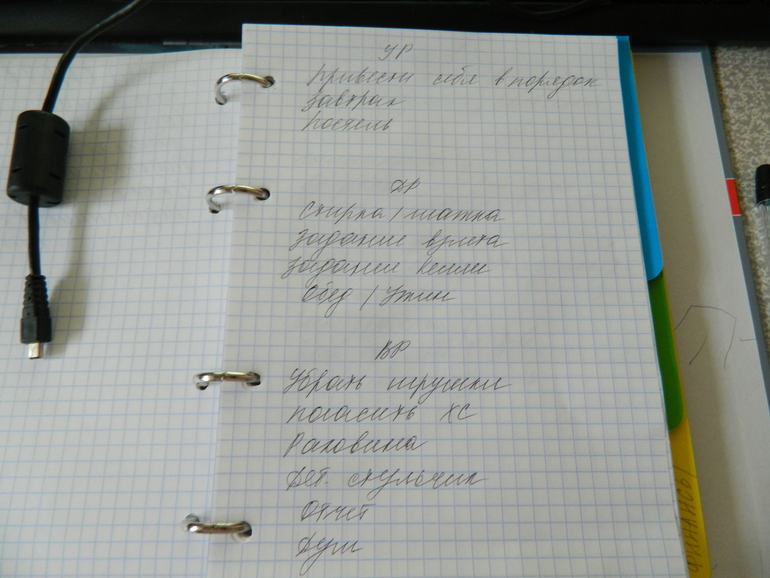 УР
Привести себя в порядок
Завтрак
Постель
ДР
Стирка / глажка
Задание
Задание
Обед / Ужин
ВР
Убрать игрушки
Погасить ХС
Раковина
Дет. стульчик
Отчет
Душ
ФИНАНСЫ